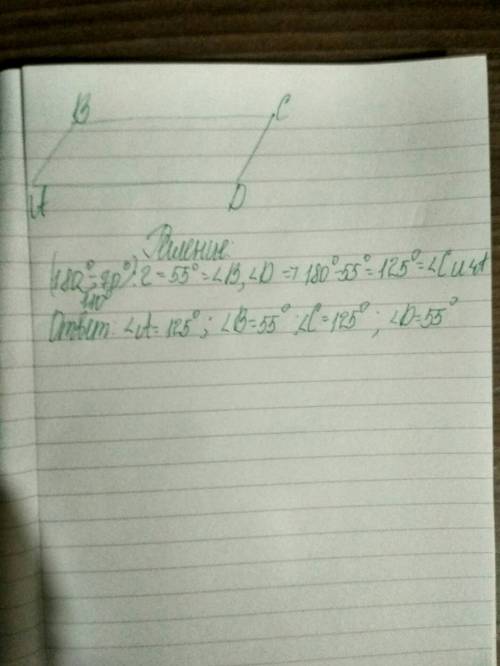 B C
A D
Решение:
(180°-70°):2=55°=∠B,∠D=> 180°-55°=125°=∠C и ∠A
110°
Ответ: ∠A=125°; ∠B=55°; ∠C=125°; ∠D=55°